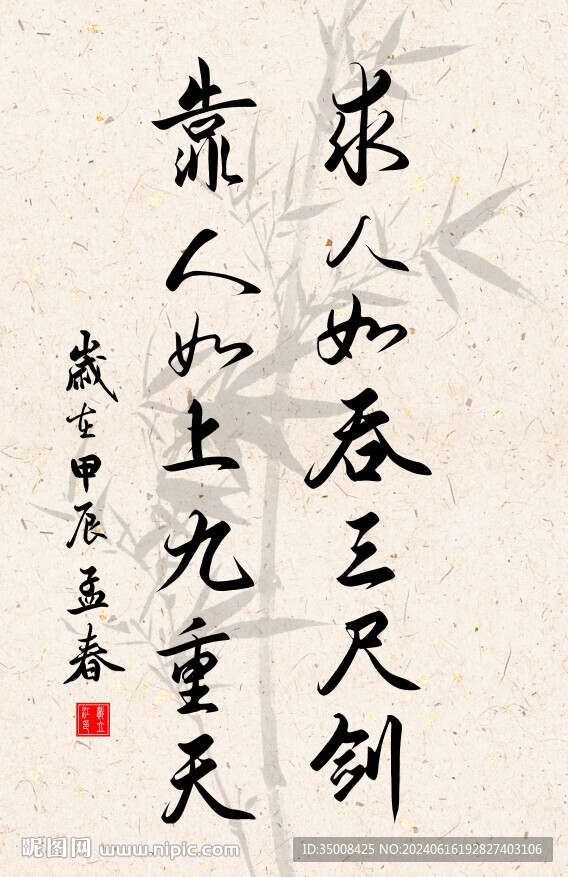 求人如吞三尺剑
靠人如上九重天
歲在甲辰孟春
昵图网 www.nipic.com
ID:35008425 NO:20240616192827403106